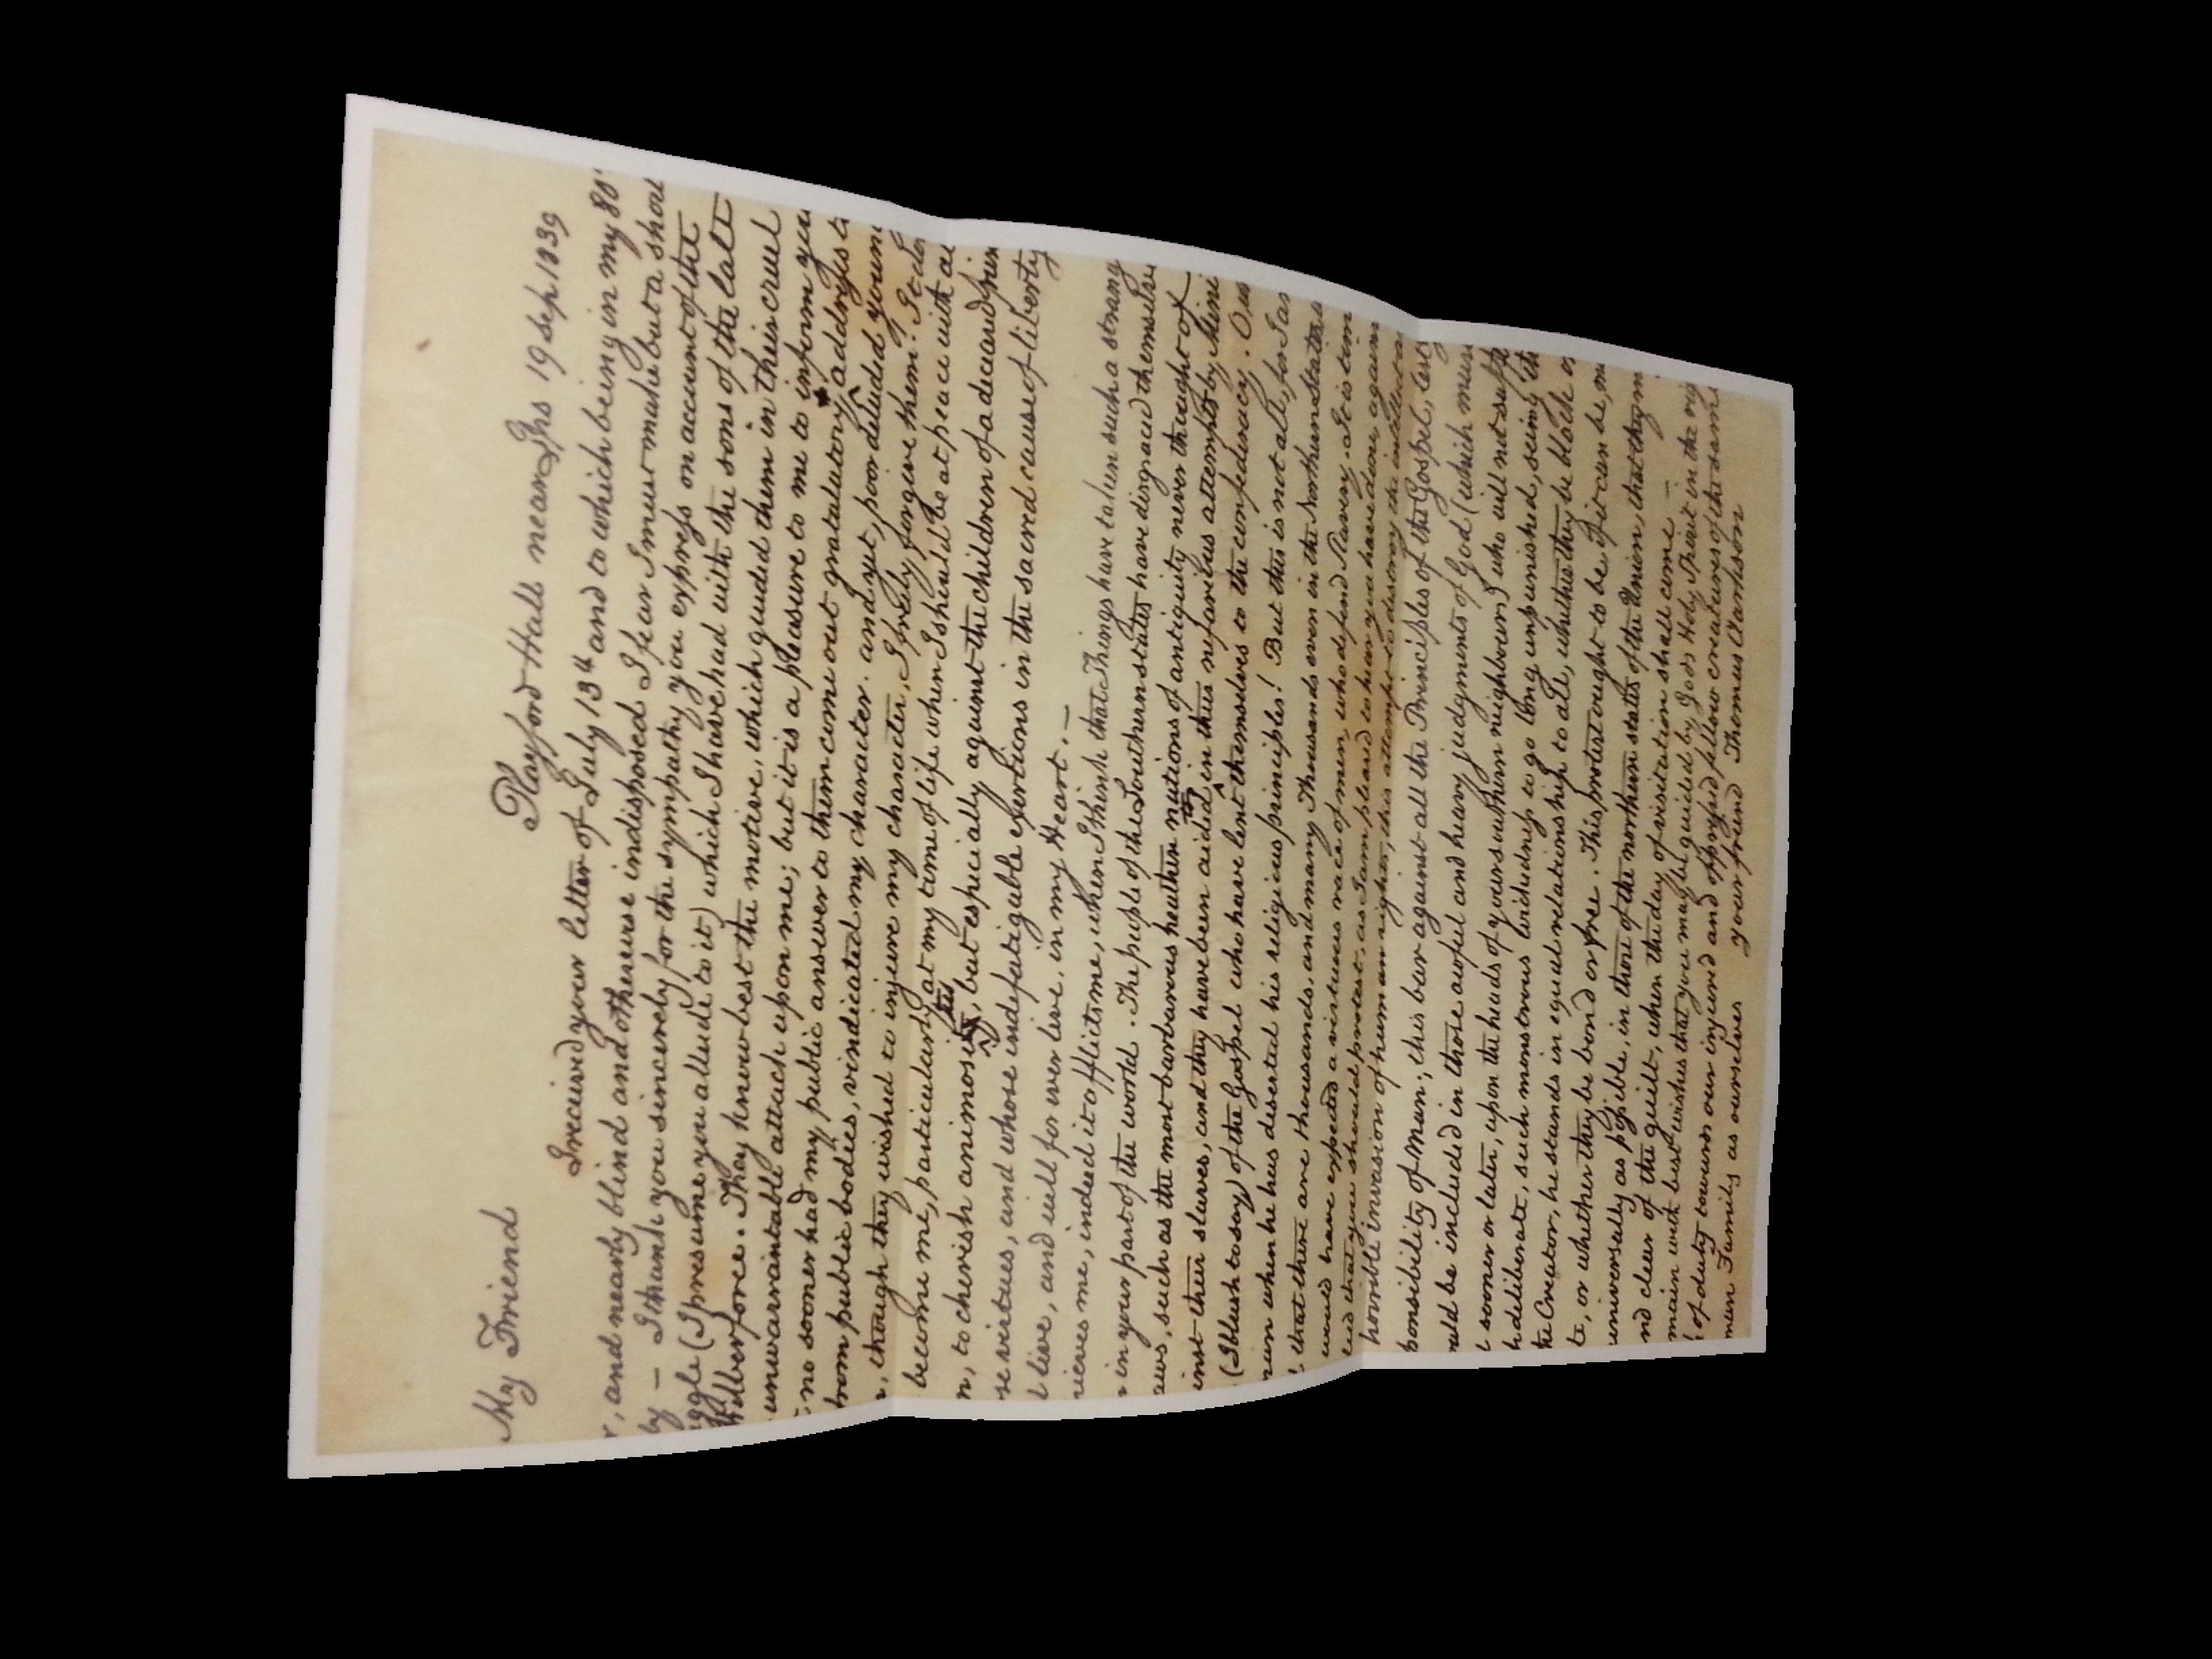 My Friend
Playford Hall near Ips 19 Sep. 1839
I received your letter of July 13th and to which being in my 80
, and nearly blind and otherwise indisposed I fear I must make but a shor
by — I thank you sincerely for the sympathy you express on account of the
uggle (I presume you allude to it) which I have had with the sons of the late
Wilberforce. They know best the motive, which guided them in their cruel
unwarrantable attack upon me; but it is a pleasure to me to inform you
no sooner had my public answer to them come out gratulatory addresses
from public bodies, vindicated my character. and yet, poor deluded youn
, though they wished to injure my character, I freely forgive them. It do
become me, particularly at my time of life when I should be at peace with al
n, to cherish animosity, but especially against the children of a deceased frien
se virtues, and whose indefatigable exertions in the sacred cause of liberty
l live, and will for ever live, in my Heart. —
rieves me, indeed it afflicts me, when I think that Things have taken such a strang
in your part of the world. The people of the Southern states have disgraced themselve
aws, such as the most barbarous heathen nations of antiquity never thought of
inst their slaves, and they have been aided in this nefarious attempt by Mini
(I blush to say) of the Gospel who have lent themselves to the confederacy. O
run when he has deserted his religious principles! But this is not all, for I a
that there are thousands, and many Thousands even in the Northern States
would have expected a virtuous race of men, who defend Slavery. It is tim
ed that you should protest, as I am pleased to hear you have done, again
horrible invasion of human rights, this attempt to destroy the intellect a
ponsibility of Man; this bar against all the Principles of the Gospel, lest
uld be included in those awful and heavy judgments of God (which mus
l sooner or later, upon the heads of your southern neighbours) who will not suffe
h deliberate, such monstrous wickedness to go long unpunished, seeing th
the Creator, he stands in equal relationship to all, whether they be black or
te, or whether they be bond or free. This protest ought to be, if it can be, m
universally as possible, in those of the northern states of the Union, that they m
nd clear of the guilt, when the day of visitation shall come —
main with best wishes that you may be guided by Gods Holy Spirit in the rig
h of duty towards our injured and oppressed fellow creatures of the same
man Family as ourselves your friend Thomas Clarkson